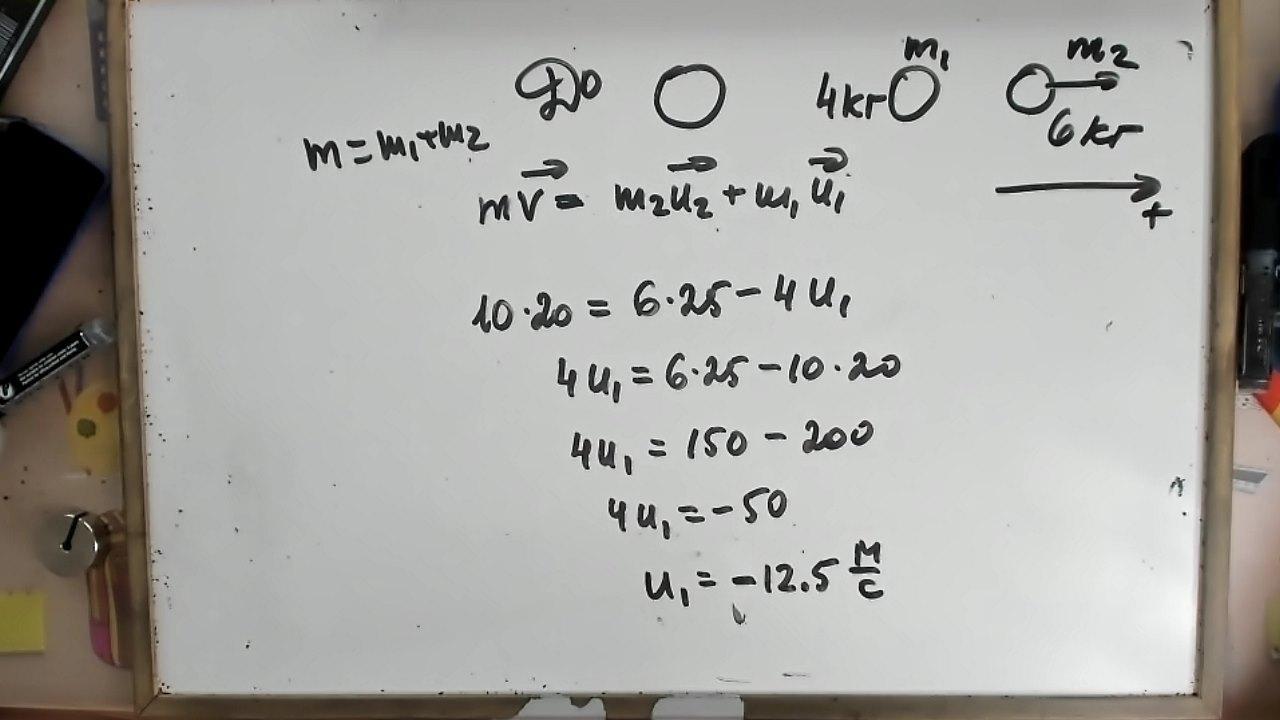 До m₁ m₂
4кг 6кг
m = m₁ + m₂
mV⃗ = m₂u⃗₂ + m₁u⃗₁ +
10·20 = 6·25 − 4u₁
4u₁ = 6·25 − 10·20
4u₁ = 150 − 200
4u₁ = −50
u₁ = −12.5 м/с